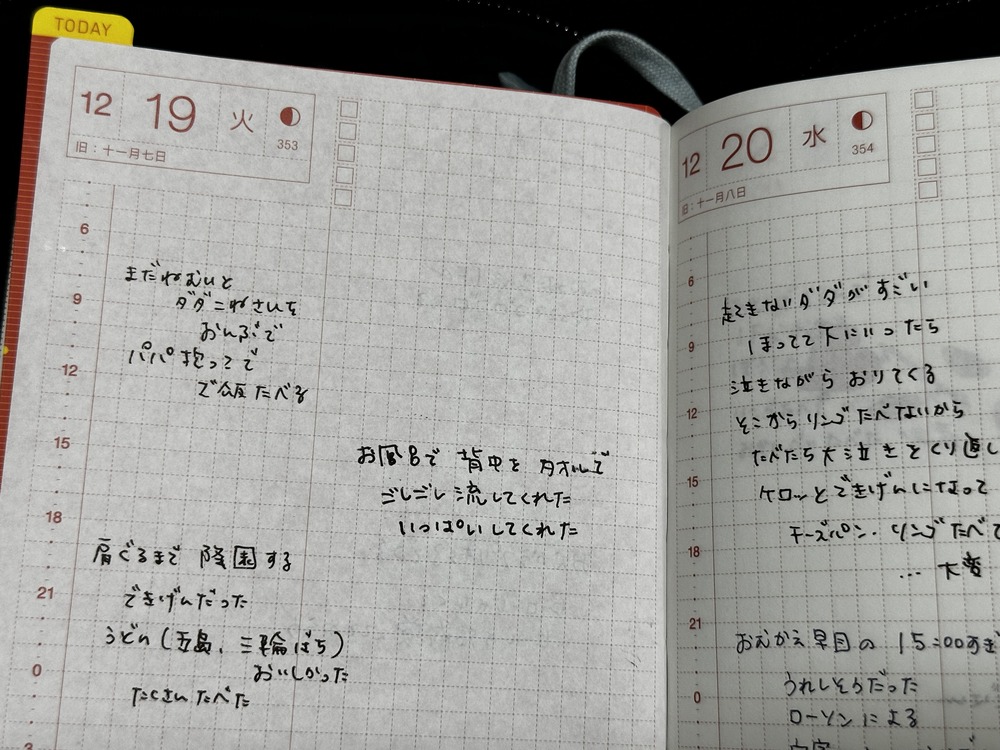 TODAY
12 19 火 353
旧：十一月七日
6
9
12
15
18
21
0
3
まだねむいと
ダダこねさいを
おんぶで
パパ抱ってで
で飯たべる
お風呂で 背中を タオルで
ごしごし流してくれた
いっぱいしてくれた
肩ぐるまで 降園する
できげんだった
うどん(五島、三輪ばち)
おいしかった
たくさんたべた
12 20 水 354
旧：十一月八日
6
9
12
15
18
21
0
起きないダダがすごい
しまってて下にいったら
泣きながら おりてくる
そこから リンゴ たべないから
たべたら大泣きをくり返し
ケロッとできげんになって
チーズパン・リンゴたべて
… 大変
おむかえ早目の 15:00すぎ
うれしそうだった
ローソンによる